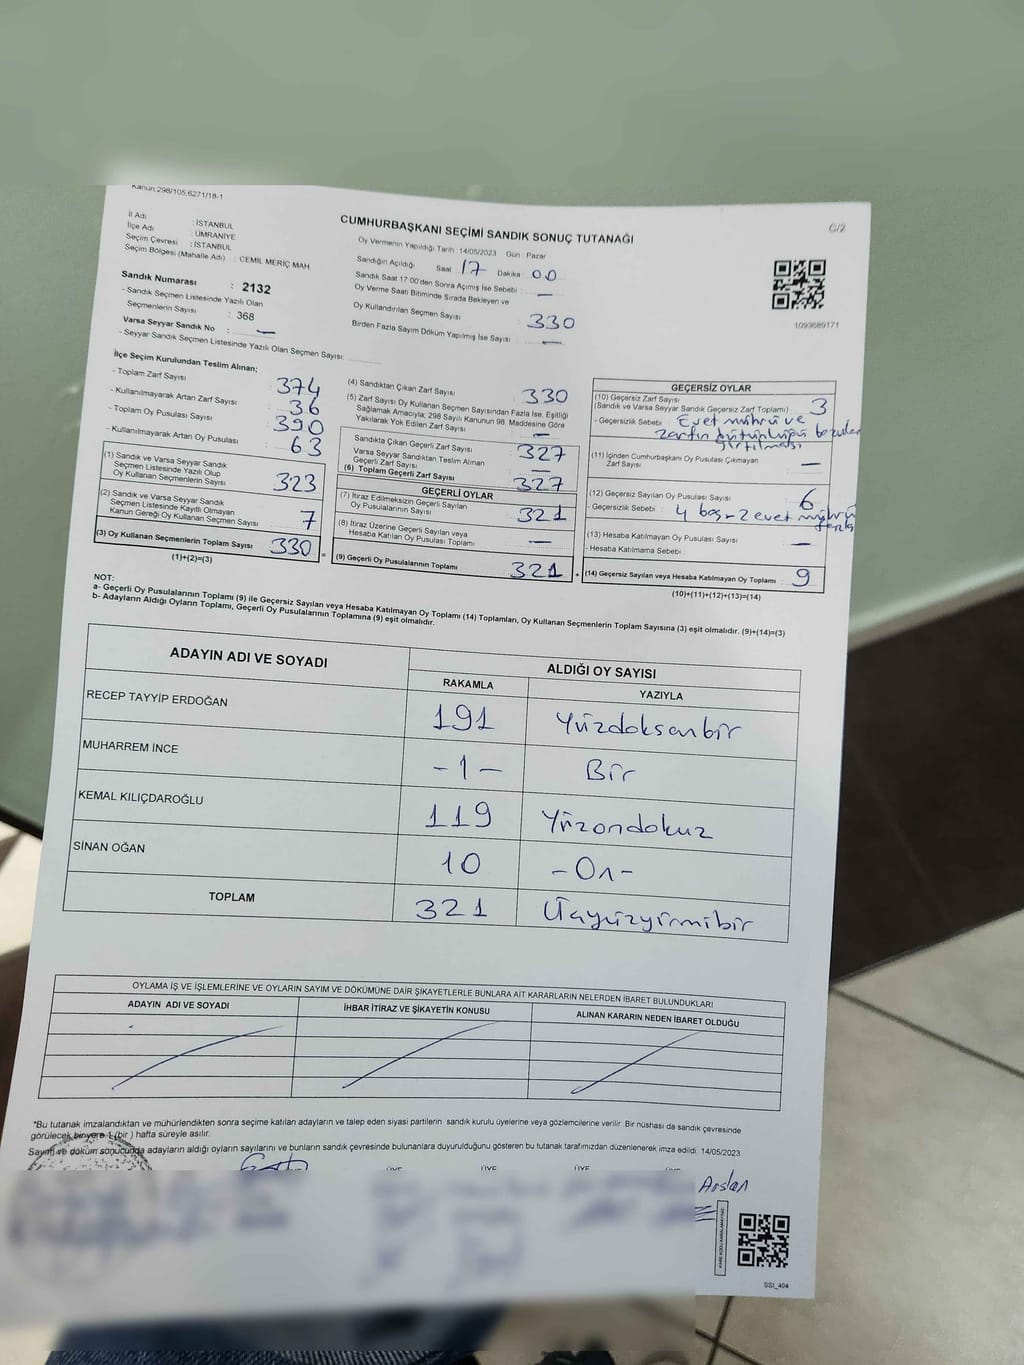 Kanun:298/105,6271/18-1
İl Adı : İSTANBUL
İlçe Adı : ÜMRANİYE
Seçim Çevresi : İSTANBUL
Seçim Bölgesi (Mahalle Adı) : CEMİL MERİÇ MAH
Sandık Numarası : 2132
- Sandık Seçmen Listesinde Yazılı Olan
Seçmenlerin Sayısı : 368
Varsa Seyyar Sandık No : —
- Seyyar Sandık Seçmen Listesinde Yazılı Olan Seçmen Sayısı:
CUMHURBAŞKANI SEÇİMİ SANDIK SONUÇ TUTANAĞI
Oy Vermenin Yapıldığı Tarih : 14/05/2023 Gün : Pazar
Sandığın Açıldığı Saat 17 Dakika 00
Sandık Saat 17:00'den Sonra Açılmış İse Sebebi : —
Oy Verme Saati Bitiminde Sırada Bekleyen ve
Oy Kullandırılan Seçmen Sayısı 330
Birden Fazla Sayım Döküm Yapılmış İse Sayısı —
C/2
1093689171
İlçe Seçim Kurulundan Teslim Alınan;
- Toplam Zarf Sayısı : 374
- Kullanılmayarak Artan Zarf Sayısı : 36
- Toplam Oy Pusulası Sayısı : 390
- Kullanılmayarak Artan Oy Pusulası : 63
(1) Sandık ve Varsa Seyyar Sandık
Seçmen Listesinde Yazılı Olup
Oy Kullanan Seçmenlerin Sayısı 323
(2) Sandık ve Varsa Seyyar Sandık
Seçmen Listesinde Kayıtlı Olmayan
Kanun Gereği Oy Kullanan Seçmen Sayısı 7
(3) Oy Kullanan Seçmenlerin Toplam Sayısı 330 =
(1)+(2)=(3)
(4) Sandıktan Çıkan Zarf Sayısı 330
(5) Zarf Sayısı Oy Kullanan Seçmen Sayısından Fazla İse, Eşitliği
Sağlamak Amacıyla, 298 Sayılı Kanunun 98. Maddesine Göre
Yakılarak Yok Edilen Zarf Sayısı —
Sandıkta Çıkan Geçerli Zarf Sayısı 327
Varsa Seyyar Sandıktan Teslim Alınan
Geçerli Zarf Sayısı —
(6) Toplam Geçerli Zarf Sayısı 327
GEÇERLİ OYLAR
(7) İtiraz Edilmeksizin Geçerli Sayılan
Oy Pusulalarının Sayısı 321
(8) İtiraz Üzerine Geçerli Sayılan veya
Hesaba Katılan Oy Pusulası Toplamı —
(9) Geçerli Oy Pusulalarının Toplamı 321 +
GEÇERSİZ OYLAR
(10) Geçersiz Zarf Sayısı
(Sandık ve Varsa Seyyar Sandık Geçersiz Zarf Toplamı) 3
- Geçersizlik Sebebi : Evet mührü ve
zarfın bütünlüğü bozulan
yırtılması
(11) İçinden Cumhurbaşkanı Oy Pusulası Çıkmayan
Zarf Sayısı —
(12) Geçersiz Sayılan Oy Pusulası Sayısı 6
- Geçersizlik Sebebi : 4 boş - 2 evet mührü
fazla
(13) Hesaba Katılmayan Oy Pusulası Sayısı —
- Hesaba Katılmama Sebebi :
(14) Geçersiz Sayılan veya Hesaba Katılmayan Oy Toplamı 9
(10)+(11)+(12)+(13)=(14)
NOT:
a- Geçerli Oy Pusulalarının Toplamı (9) ile Geçersiz Sayılan veya Hesaba Katılmayan Oy Toplamı (14) Toplamları, Oy Kullanan Seçmenlerin Toplam Sayısına (3) eşit olmalıdır. (9)+(14)=(3)
b- Adayların Aldığı Oyların Toplamı, Geçerli Oy Pusulalarının Toplamına (9) eşit olmalıdır.
ADAYIN ADI VE SOYADI ALDIĞI OY SAYISI
RAKAMLA YAZIYLA
RECEP TAYYİP ERDOĞAN 191 Yüzdoksanbir
MUHARREM İNCE -1- Bir
KEMAL KILIÇDAROĞLU 119 Yüzondokuz
SİNAN OĞAN 10 -On-
TOPLAM 321 Üçyüzyirmibir
OYLAMA İŞ VE İŞLEMLERİNE VE OYLARIN SAYIM VE DÖKÜMÜNE DAİR ŞİKAYETLERLE BUNLARA AİT KARARLARIN NELERDEN İBARET BULUNDUKLARI
ADAYIN ADI VE SOYADI İHBAR İTİRAZ VE ŞİKAYETİN KONUSU ALINAN KARARIN NEDEN İBARET OLDUĞU
*Bu tutanak imzalandıktan ve mühürlendikten sonra seçime katılan adayların ve talep eden siyasi partilerin sandık kurulu üyelerine veya gözlemcilerine verilir. Bir nüshası da sandık çevresinde
görülecek bir yere 1 (bir ) hafta süreyle asılır.
Sayım ve döküm sonucunda adayların aldığı oyların sayılarını ve bunların sandık çevresinde bulunanlara duyurulduğunu gösteren bu tutanak tarafımızdan düzenlenerek imza edildi. 14/05/2023
ÜYE ÜYE ÜYE ÜYE
Arslan
SSI_404